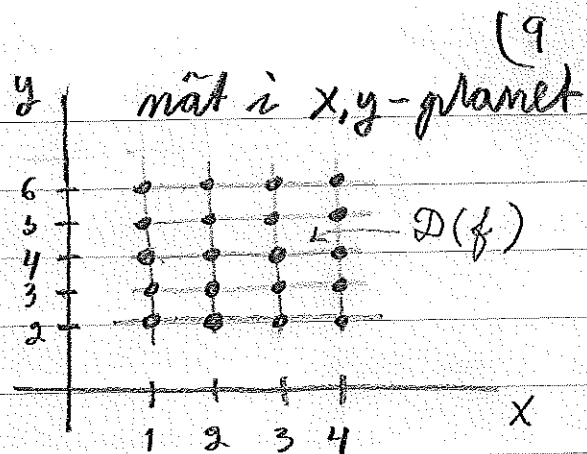 (9
y nät i x,y-planet
6
5
4 D(f)
3
2
1 2 3 4 X